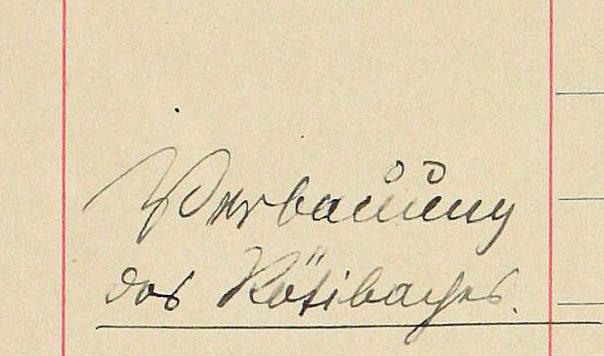 Verbauung
des Rötibaches.